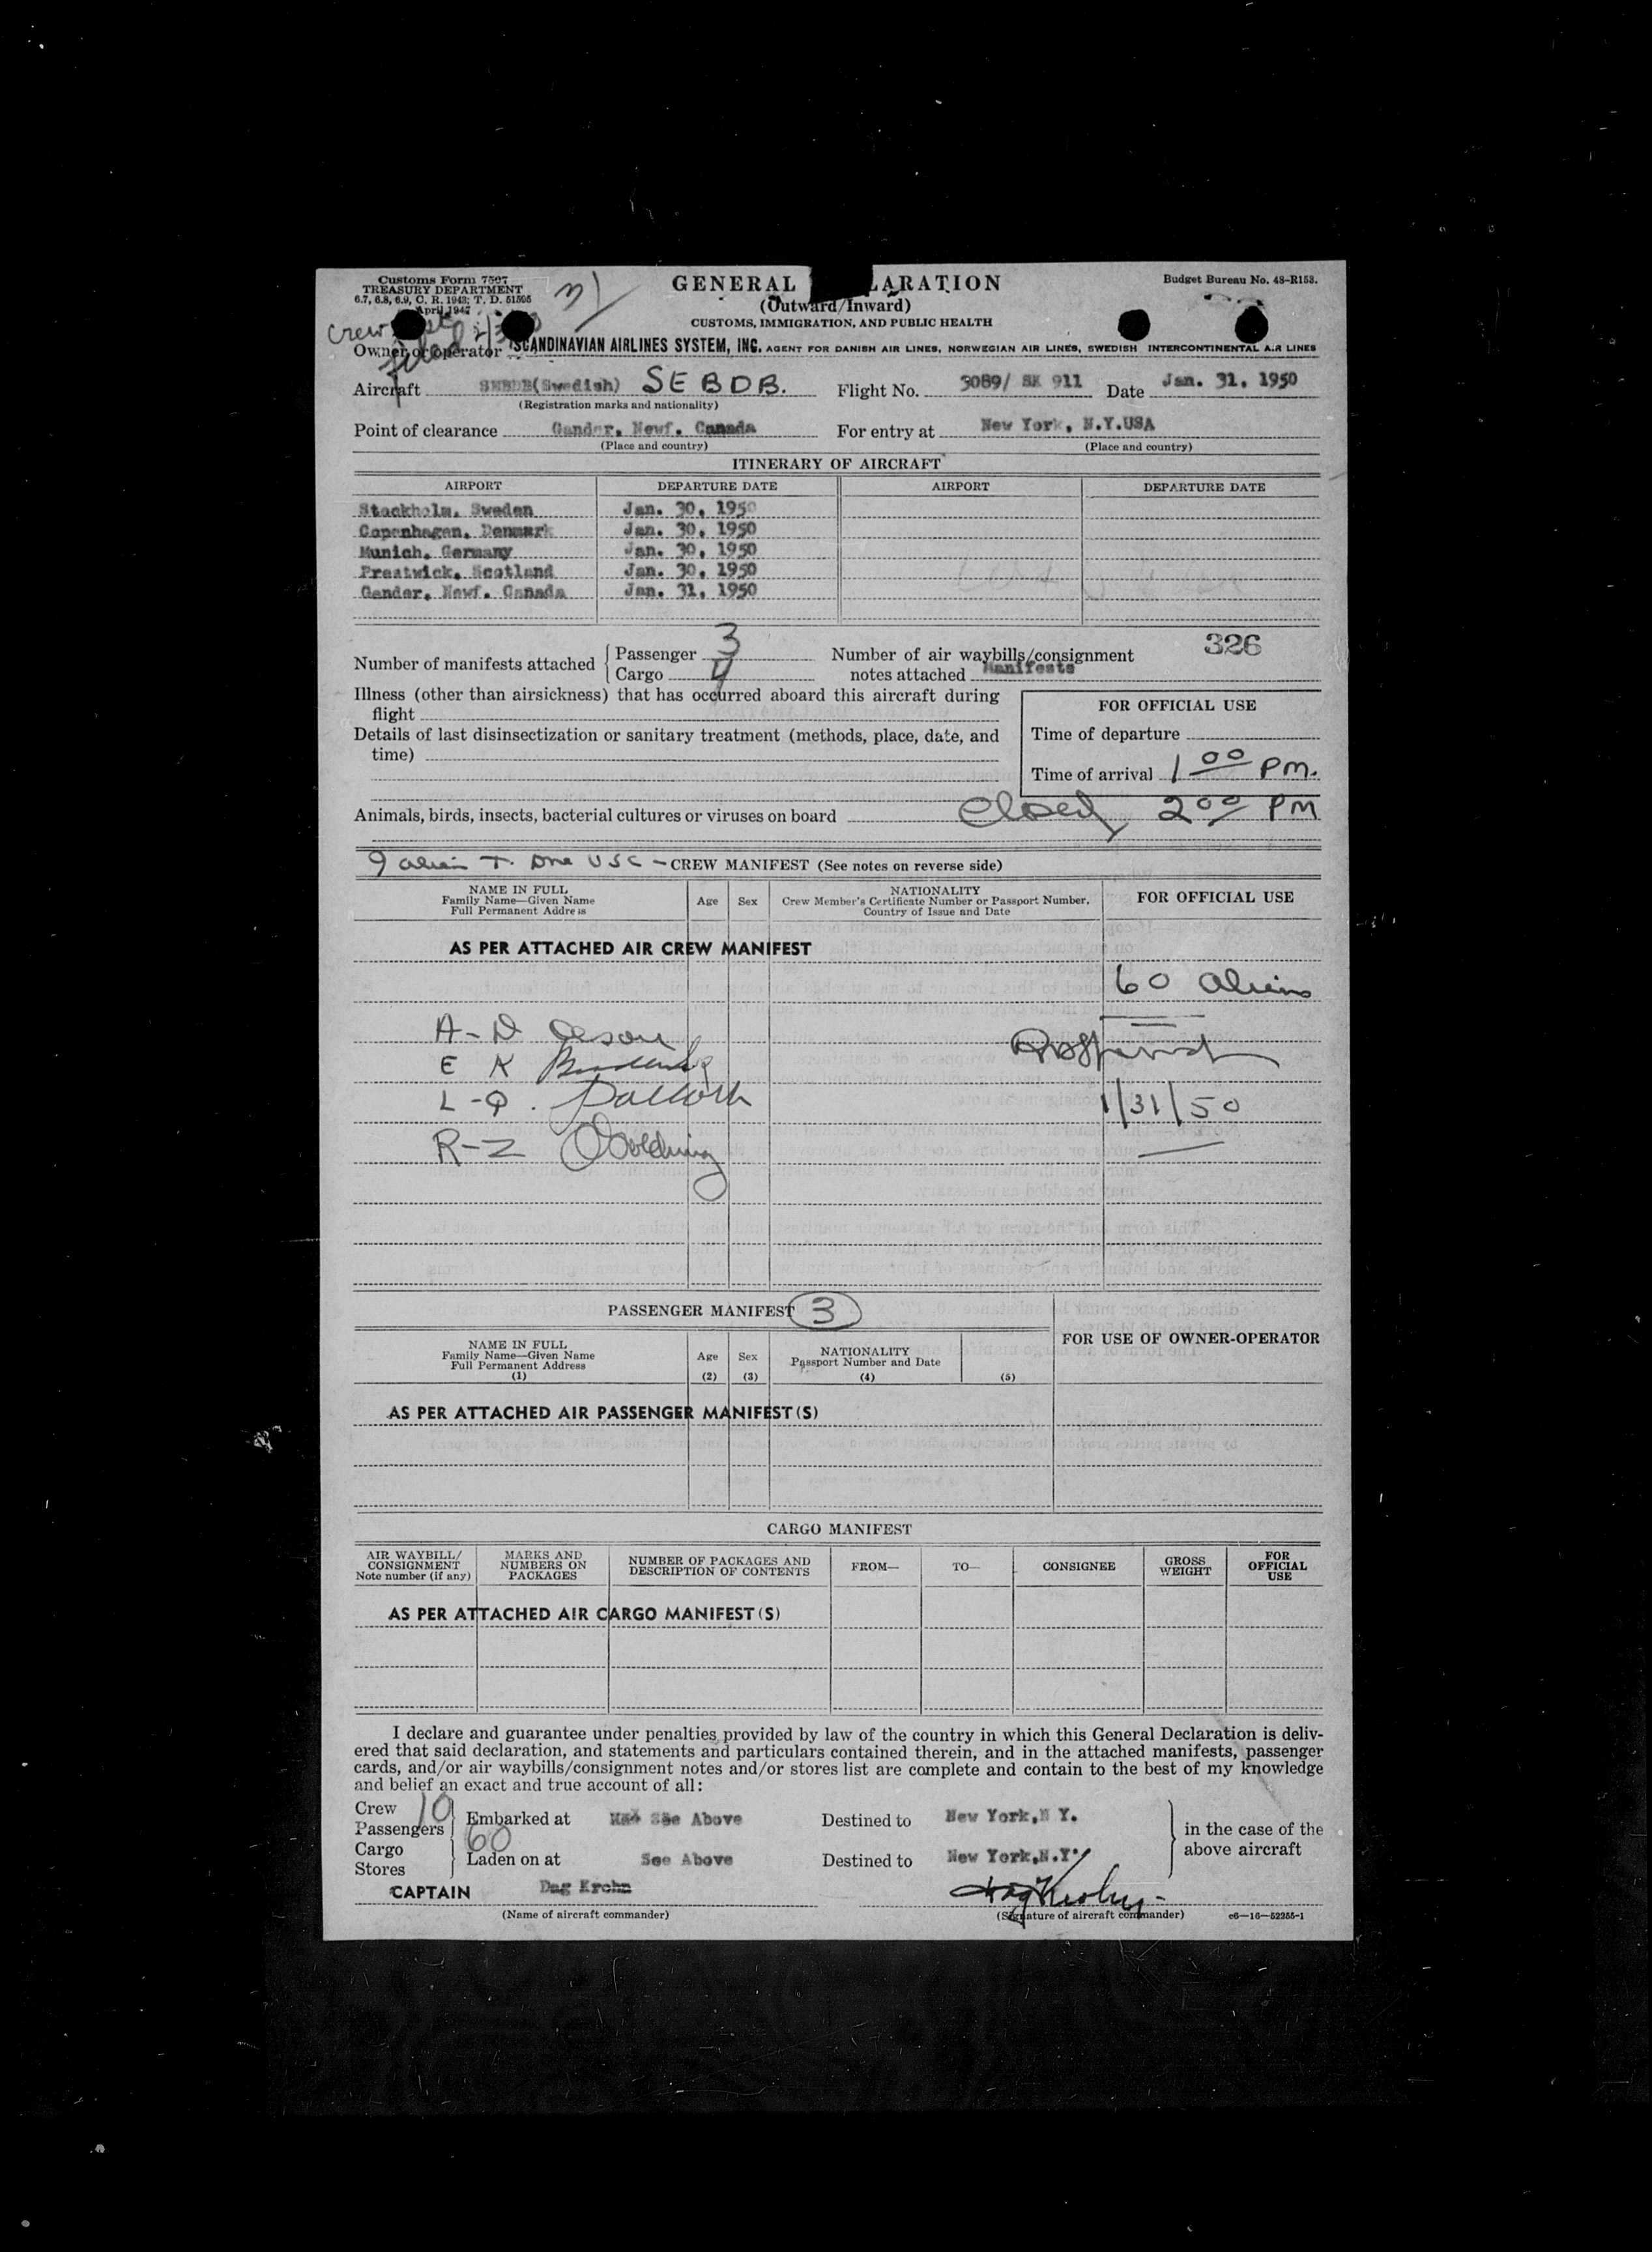 Customs Form 7507
TREASURY DEPARTMENT
6.7, 6.8, 6.9, C. R. 1943; T. D. 51595
April 1947
31
GENERAL LARATION
(Outward/Inward)
CUSTOMS, IMMIGRATION, AND PUBLIC HEALTH
Budget Bureau No. 48-R153.
Crew
filed
Owner or operator SCANDINAVIAN AIRLINES SYSTEM, INC. AGENT FOR DANISH AIR LINES, NORWEGIAN AIR LINES, SWEDISH INTERCONTINENTAL AIR LINES
Aircraft SEBDB(Swedish) SEBDB. Flight No. 3089/ SK 911 Date Jan. 31, 1950
(Registration marks and nationality)
Point of clearance Gander, Newf. Canada For entry at New York, N.Y.USA
(Place and country) (Place and country)
ITINERARY OF AIRCRAFT
AIRPORT DEPARTURE DATE AIRPORT DEPARTURE DATE
Stockholm, Sweden Jan. 30, 1950
Copenhagen, Denmark Jan. 30, 1950
Munich, Germany Jan. 30, 1950
Prestwick, Scotland Jan. 30, 1950
Gander, Newf. Canada Jan. 31, 1950
326
Number of manifests attached Passenger 3 Number of air waybills/consignment
Cargo 4 notes attached Manifests
Illness (other than airsickness) that has occurred aboard this aircraft during
flight
FOR OFFICIAL USE
Details of last disinsectization or sanitary treatment (methods, place, date, and
time)
Time of departure
Time of arrival 1 00 PM.
Animals, birds, insects, bacterial cultures or viruses on board closed 2 00 PM
9 alien T. one USC - CREW MANIFEST (See notes on reverse side)
NAME IN FULL
Family Name—Given Name
Full Permanent Address
Age Sex
NATIONALITY
Crew Member's Certificate Number or Passport Number,
Country of Issue and Date
FOR OFFICIAL USE
AS PER ATTACHED AIR CREW MANIFEST
60 aliens
A-D
E K
L-Q.
1/31/50
R-Z
PASSENGER MANIFEST 3
FOR USE OF OWNER-OPERATOR
NAME IN FULL
Family Name—Given Name
Full Permanent Address
(1)
Age
(2)
Sex
(3)
NATIONALITY
Passport Number and Date
(4)
(5)
AS PER ATTACHED AIR PASSENGER MANIFEST(S)
CARGO MANIFEST
AIR WAYBILL/
CONSIGNMENT
Note number (if any)
MARKS AND
NUMBERS ON
PACKAGES
NUMBER OF PACKAGES AND
DESCRIPTION OF CONTENTS
FROM— TO— CONSIGNEE
GROSS
WEIGHT
FOR
OFFICIAL
USE
AS PER ATTACHED AIR CARGO MANIFEST(S)
I declare and guarantee under penalties provided by law of the country in which this General Declaration is deliv-
ered that said declaration, and statements and particulars contained therein, and in the attached manifests, passenger
cards, and/or air waybills/consignment notes and/or stores list are complete and contain to the best of my knowledge
and belief an exact and true account of all:
Crew 10
Passengers Embarked at See Above Destined to New York,N Y.
60
Cargo
Stores Laden on at See Above Destined to New York,N.Y.
in the case of the
above aircraft
CAPTAIN Dag Krohn Dag Krohn
(Name of aircraft commander) (Signature of aircraft commander) c6—16—52255-1